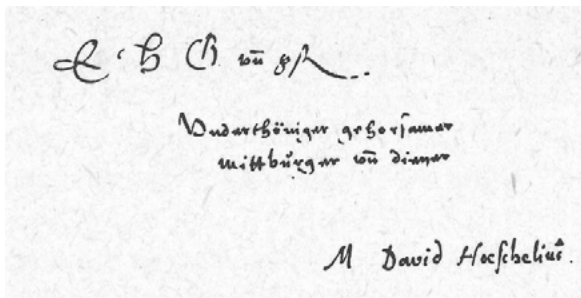 E. h. G. vn̄
Vnderthöniger gehorsamer
mittburger vn̄ diener
M David Hoeschelius.